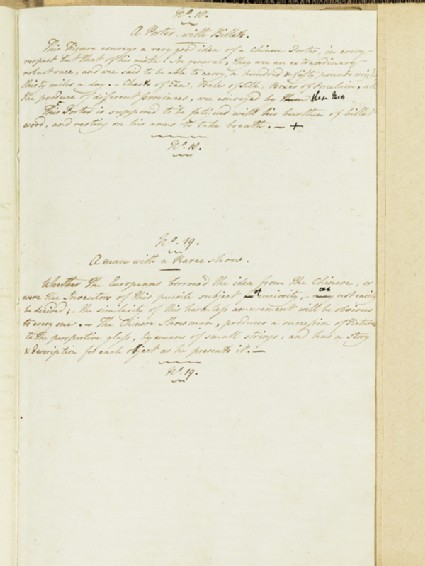 No. 18.
A Porter, with Billets.
This Figure conveys a very good idea of a Chinese Porter, in every
respect but that of his make! In general, they are an extraordinary
robust race, and are said to be able to carry, a hundred & fifty pounds weight
thirty miles a day. – Chests of Tea, Bales of Silk, Boxes of
the produce of different Provinces, are conveyed by them
This Porter is supposed to be fatigued with his burthen of billet
wood, and resting on his arms to take breath. – +
No. 18.
No. 19.
A man with a Raree show.
Whether the Europeans borrowed the idea from the Chinese, or
were the Inventors of this puerile subject of curiosity, not easily
be decided; the similarity of this harmless amusement will be obvious
to every one. – The Chinese Showman, produces a succession of Pictures
to the perspective glass, by means of small strings, and has a Story
& description for each object as he presents it. –
No. 19.